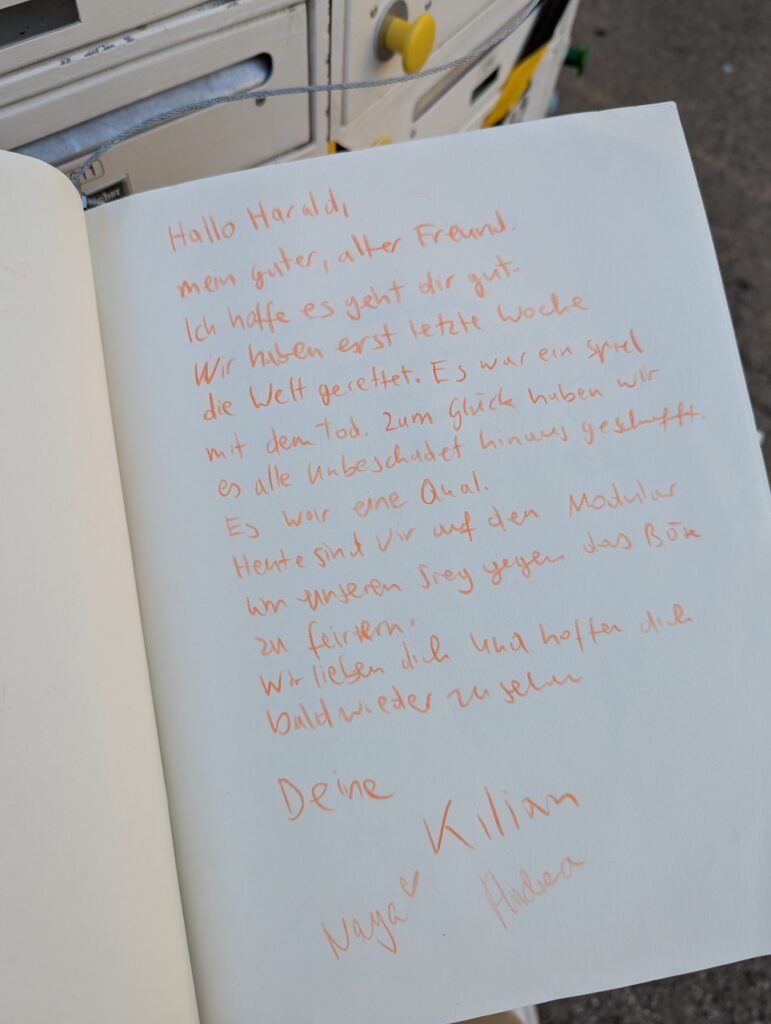 Hallo Harald,
mein guter, alter Freund.
Ich hoffe es geht dir gut.
Wir haben erst letzte Woche
die Welt gerettet. Es war ein spiel
mit dem Tod. Zum Glück haben wir
es alle unbeschadet hinaus geschafft.
Es war eine Qual.
Heute sind wir auf den Modular
um unseren Sieg gegen das Böse
zu feiern.
Wir lieben dich und hoffen dich
bald wieder zu sehen
Deine
Kilian
Naya Andrea